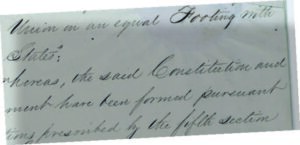 Union on an equal Footing with
States:
whereas, the said Constitution and
ment have been formed pursuant
tions prescribed by the fifth section